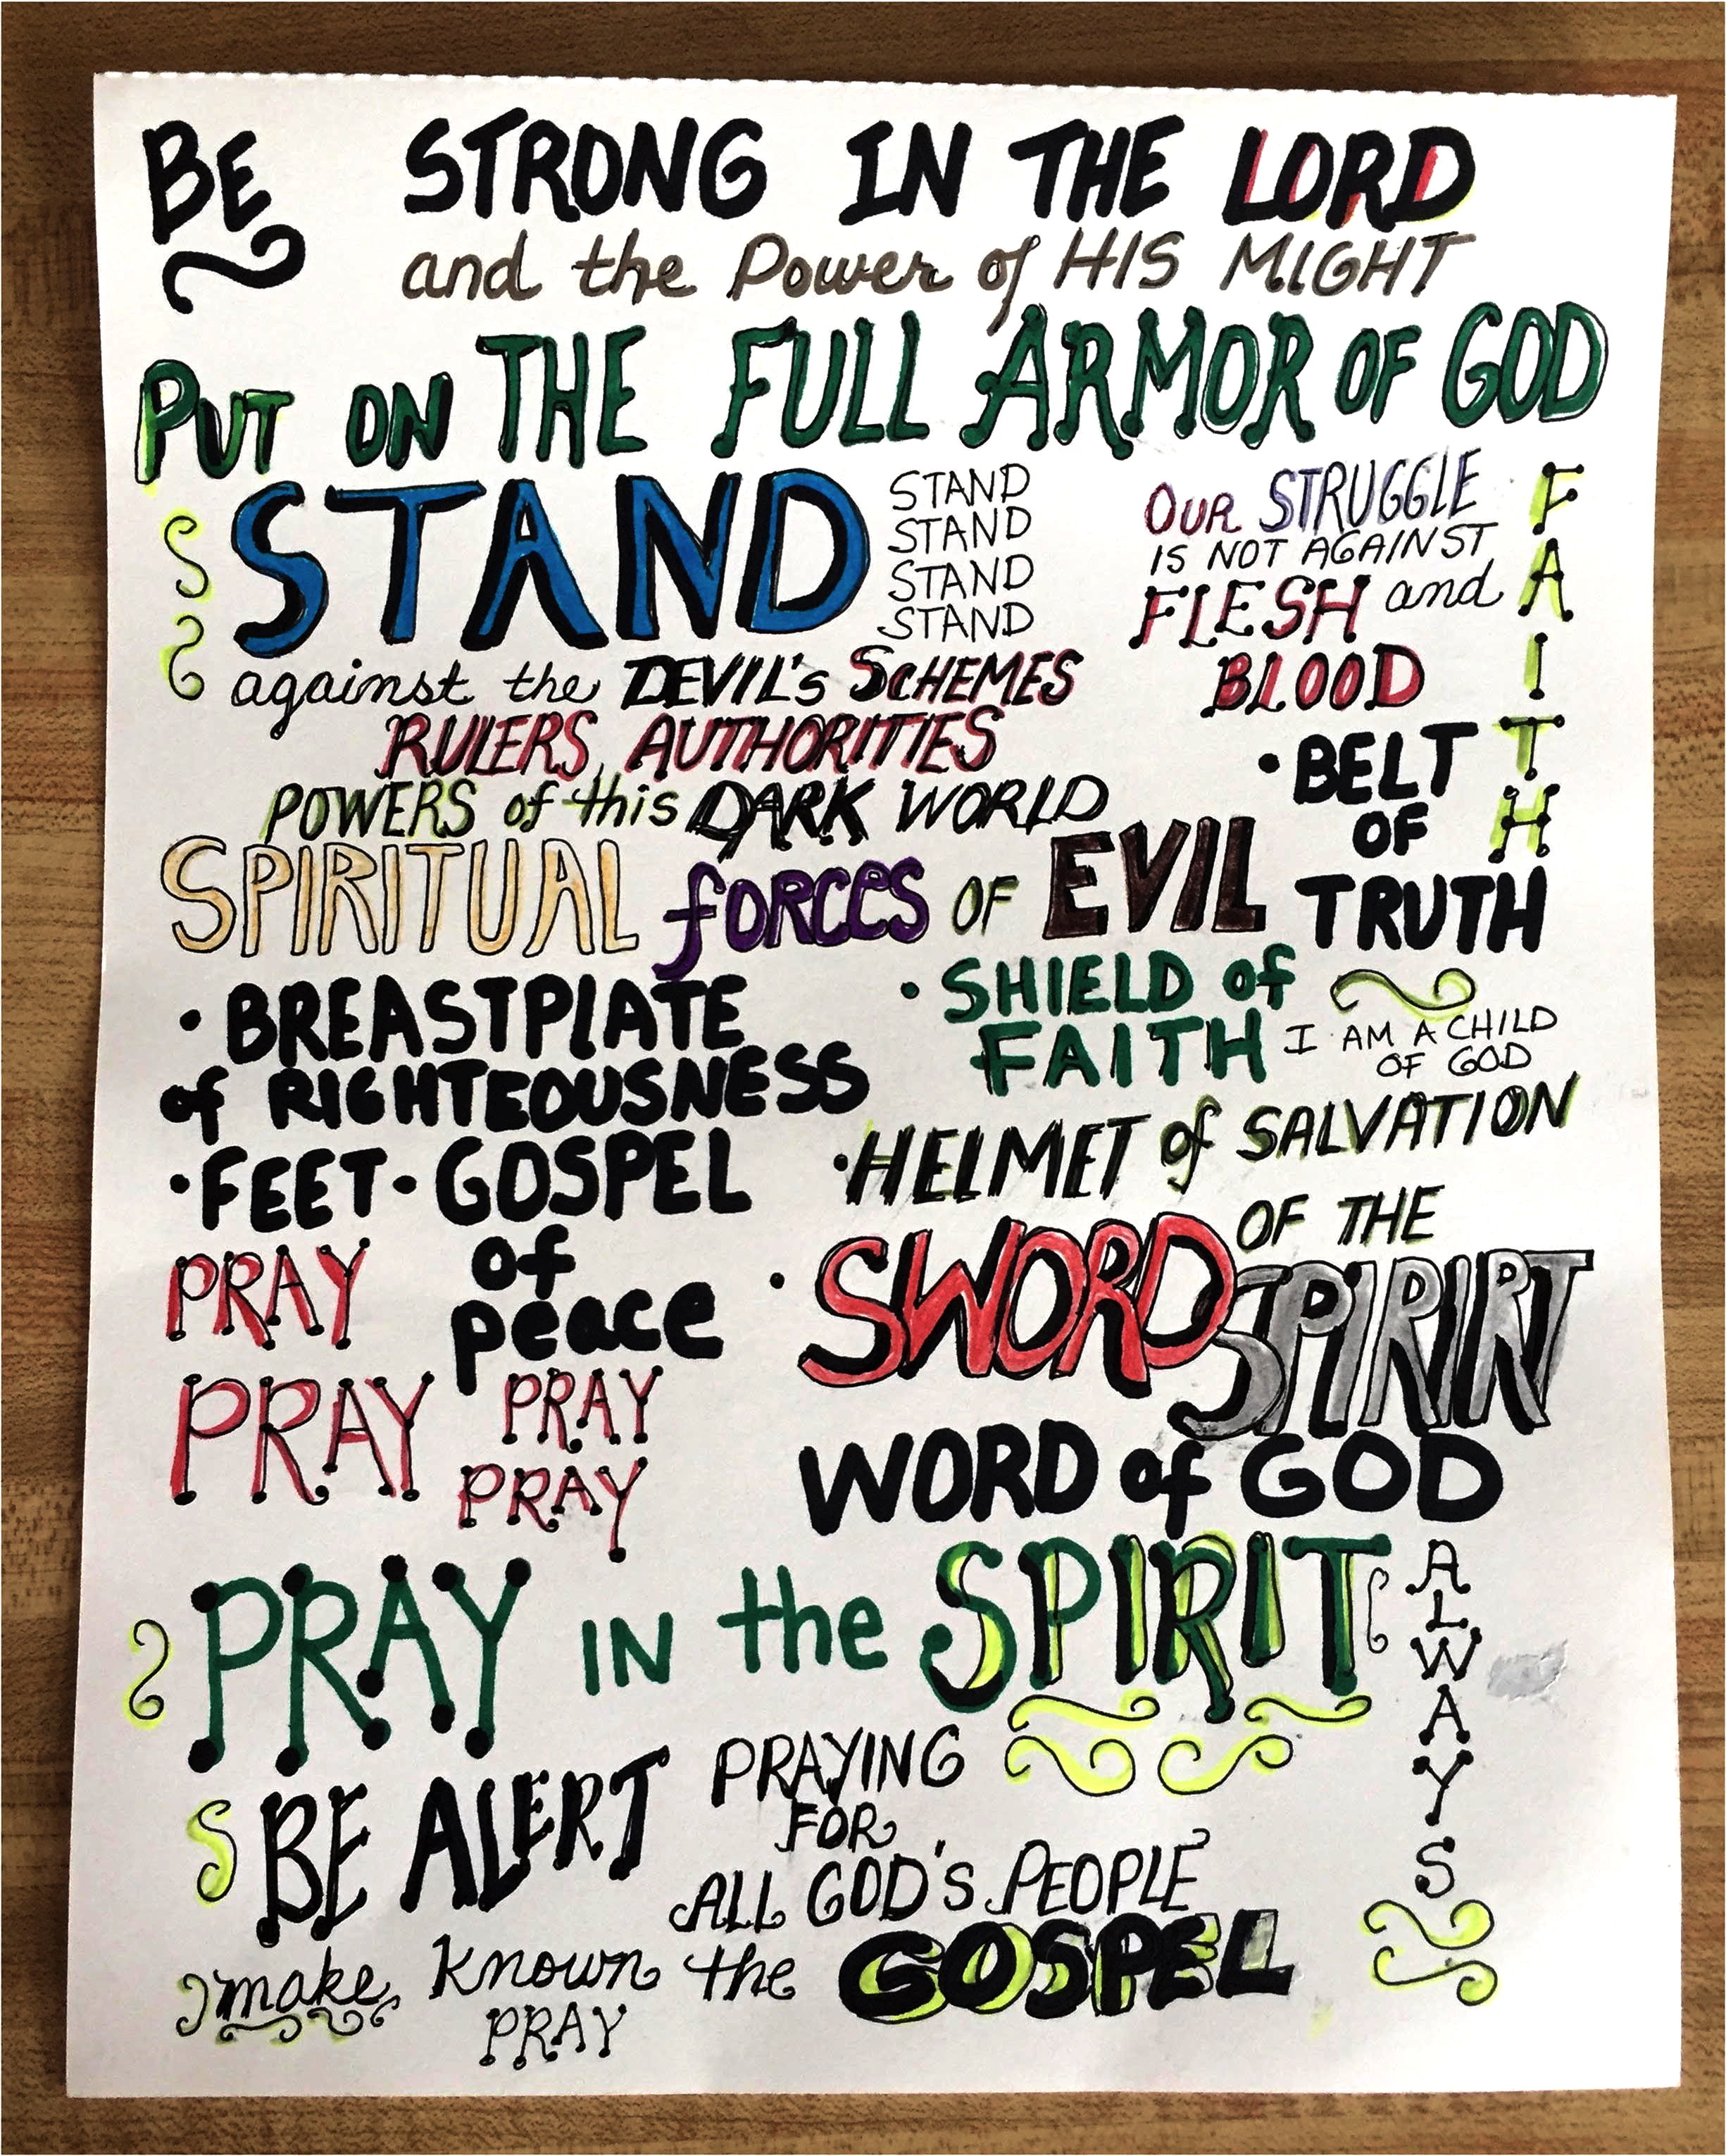 BE STRONG IN THE LORD
and the Power of HIS MIGHT
PUT ON THE FULL ARMOR OF GOD
STAND
STAND
STAND
STAND
STAND
against the DEVIL's SCHEMES
RULERS, AUTHORITIES
POWERS of this DARK WORLD
SPIRITUAL forces OF EVIL
OUR STRUGGLE
IS NOT AGAINST
FLESH and
BLOOD
FAITH
• BELT
OF
TRUTH
• BREASTPLATE
of RIGHTEOUSNESS
• SHIELD of
FAITH
I AM A CHILD
OF GOD
• FEET • GOSPEL
of
peace
• HELMET of SALVATION
• SWORD OF THE
SPIRIRT
WORD of GOD
PRAY
PRAY
PRAY
PRAY
PRAY IN the SPIRIT
ALWAYS
BE ALERT
PRAYING
FOR
ALL GOD'S PEOPLE
make known the GOSPEL
PRAY